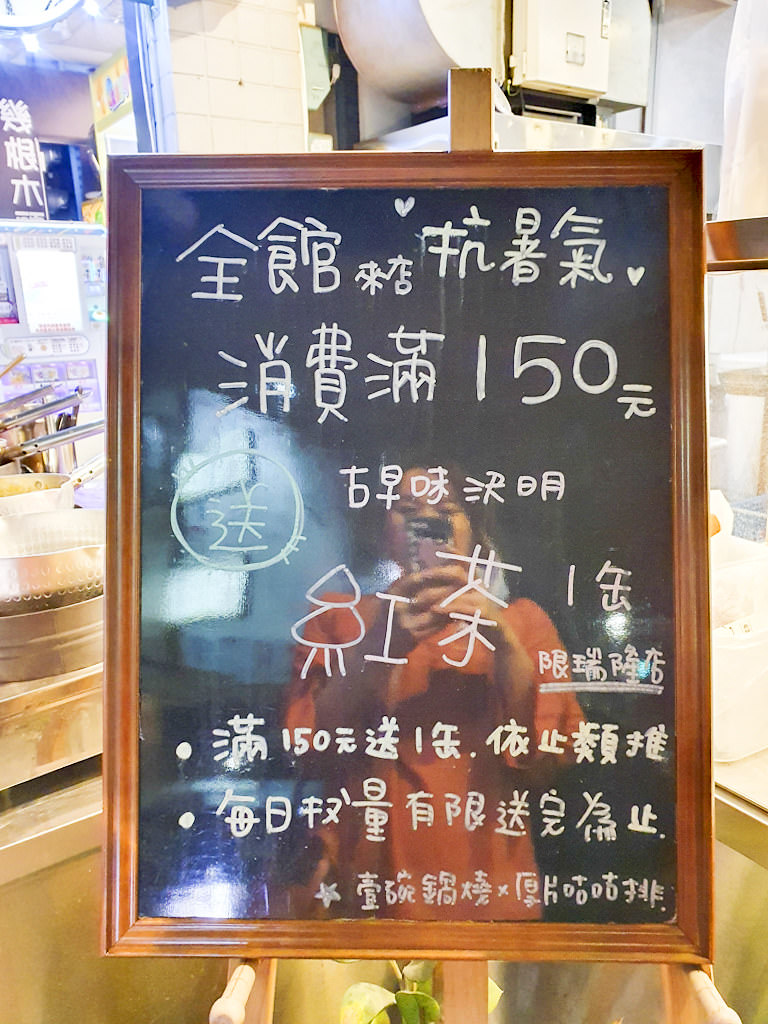 幾根大
全館來店抗暑氣
消費滿150元
送
古早味決明
紅茶1缶
限瑞隆店
滿150元送1缶.依止類推
每日权量有限送完為止.
壹碗鍋燒x厚片咕咕排.